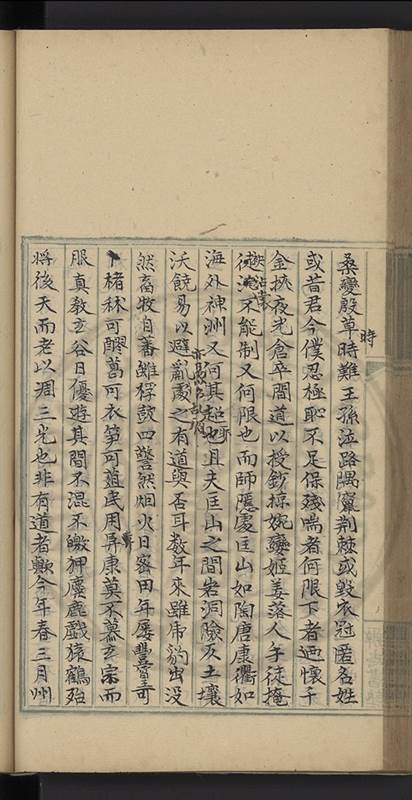 桑變殷草時難王孫泣路隅竄荆棘或毀衣冠匿名姓
時
或昔君今僕忍極恥不足保殘喘者何限下者迺懷千
金挾夜光倉卒間道以授鈔掠婉孌姬姜落人手徒掩
徒決不能制又何限也而師隱處匡山如陶唐康衢如
海外神洲又何其超也且夫匡山之間岩洞險仄土壤
沃饒易以避亂處之有道與否耳數年來雖虎豹出没
然畜牧自蕃雖桴鼓四警然烟火日密田年屢豐登可
楮秫可醪葛可衣笋可葅民用屏康莫不慕玄宗而
服真教玄谷日優遊其間不混不皦狎麋鹿戲猿鶴殆
將後天而老以凋三光也非有道者歟今年春三月州